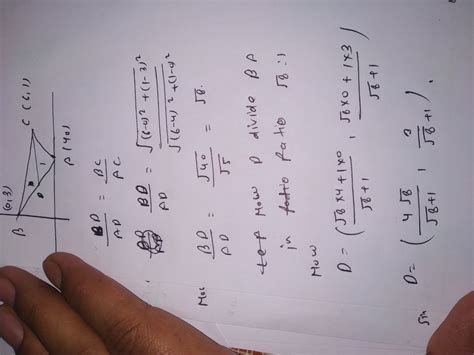 B (0,3)
C (6,1)
D
A (4,0)
BD/AD = BC/AC
BD/AD = √((6-0)² + (1-3)²) / √((6-4)² + (1-0)²)
BD/AD = √40 / √5 = √8.
Now D divide BA
in ratio √8 : 1
Now
D = ( (√8 × 4 + 1 × 0) / (√8 + 1) , (√8 × 0 + 1 × 3) / (√8 + 1) )
D = ( 4√8 / (√8 + 1) , 3 / (√8 + 1) ).